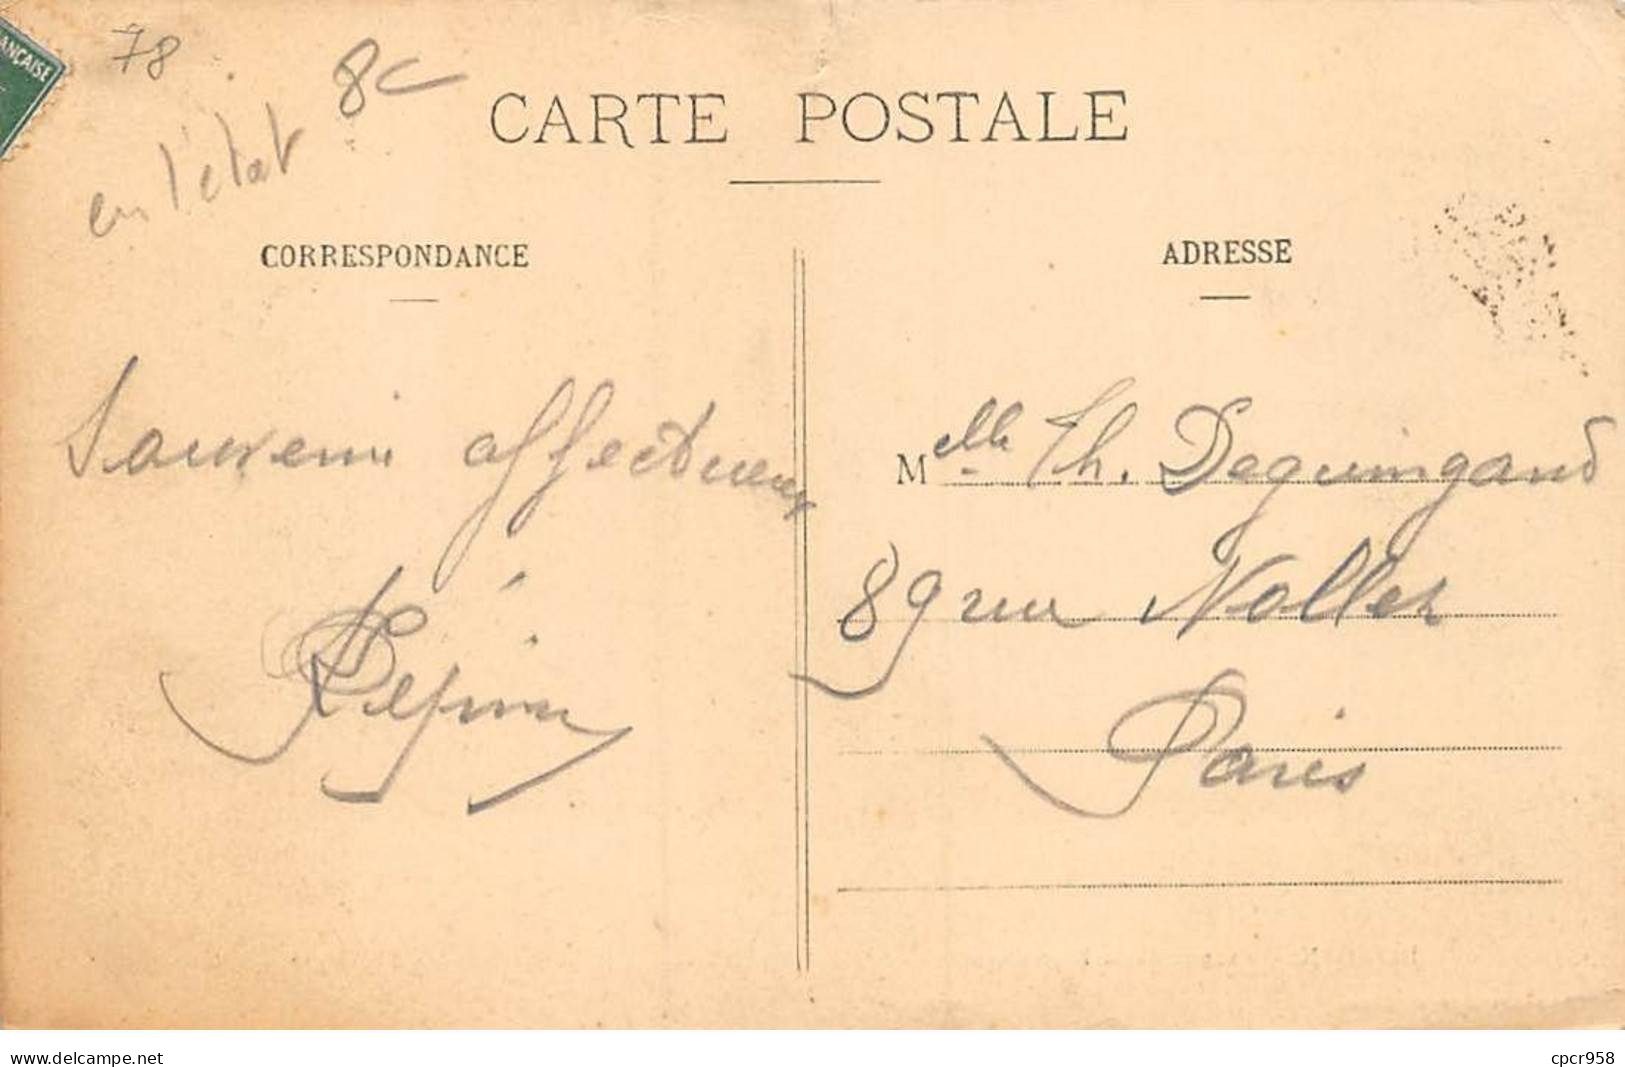 ANÇAISE
78
8c
en l'état
CARTE POSTALE
CORRESPONDANCE
ADRESSE
Souvenir affectueux
Pépin
Melle Th. Deguingand
89 rue Nollet
Paris
www.delcampe.net
cpcr958